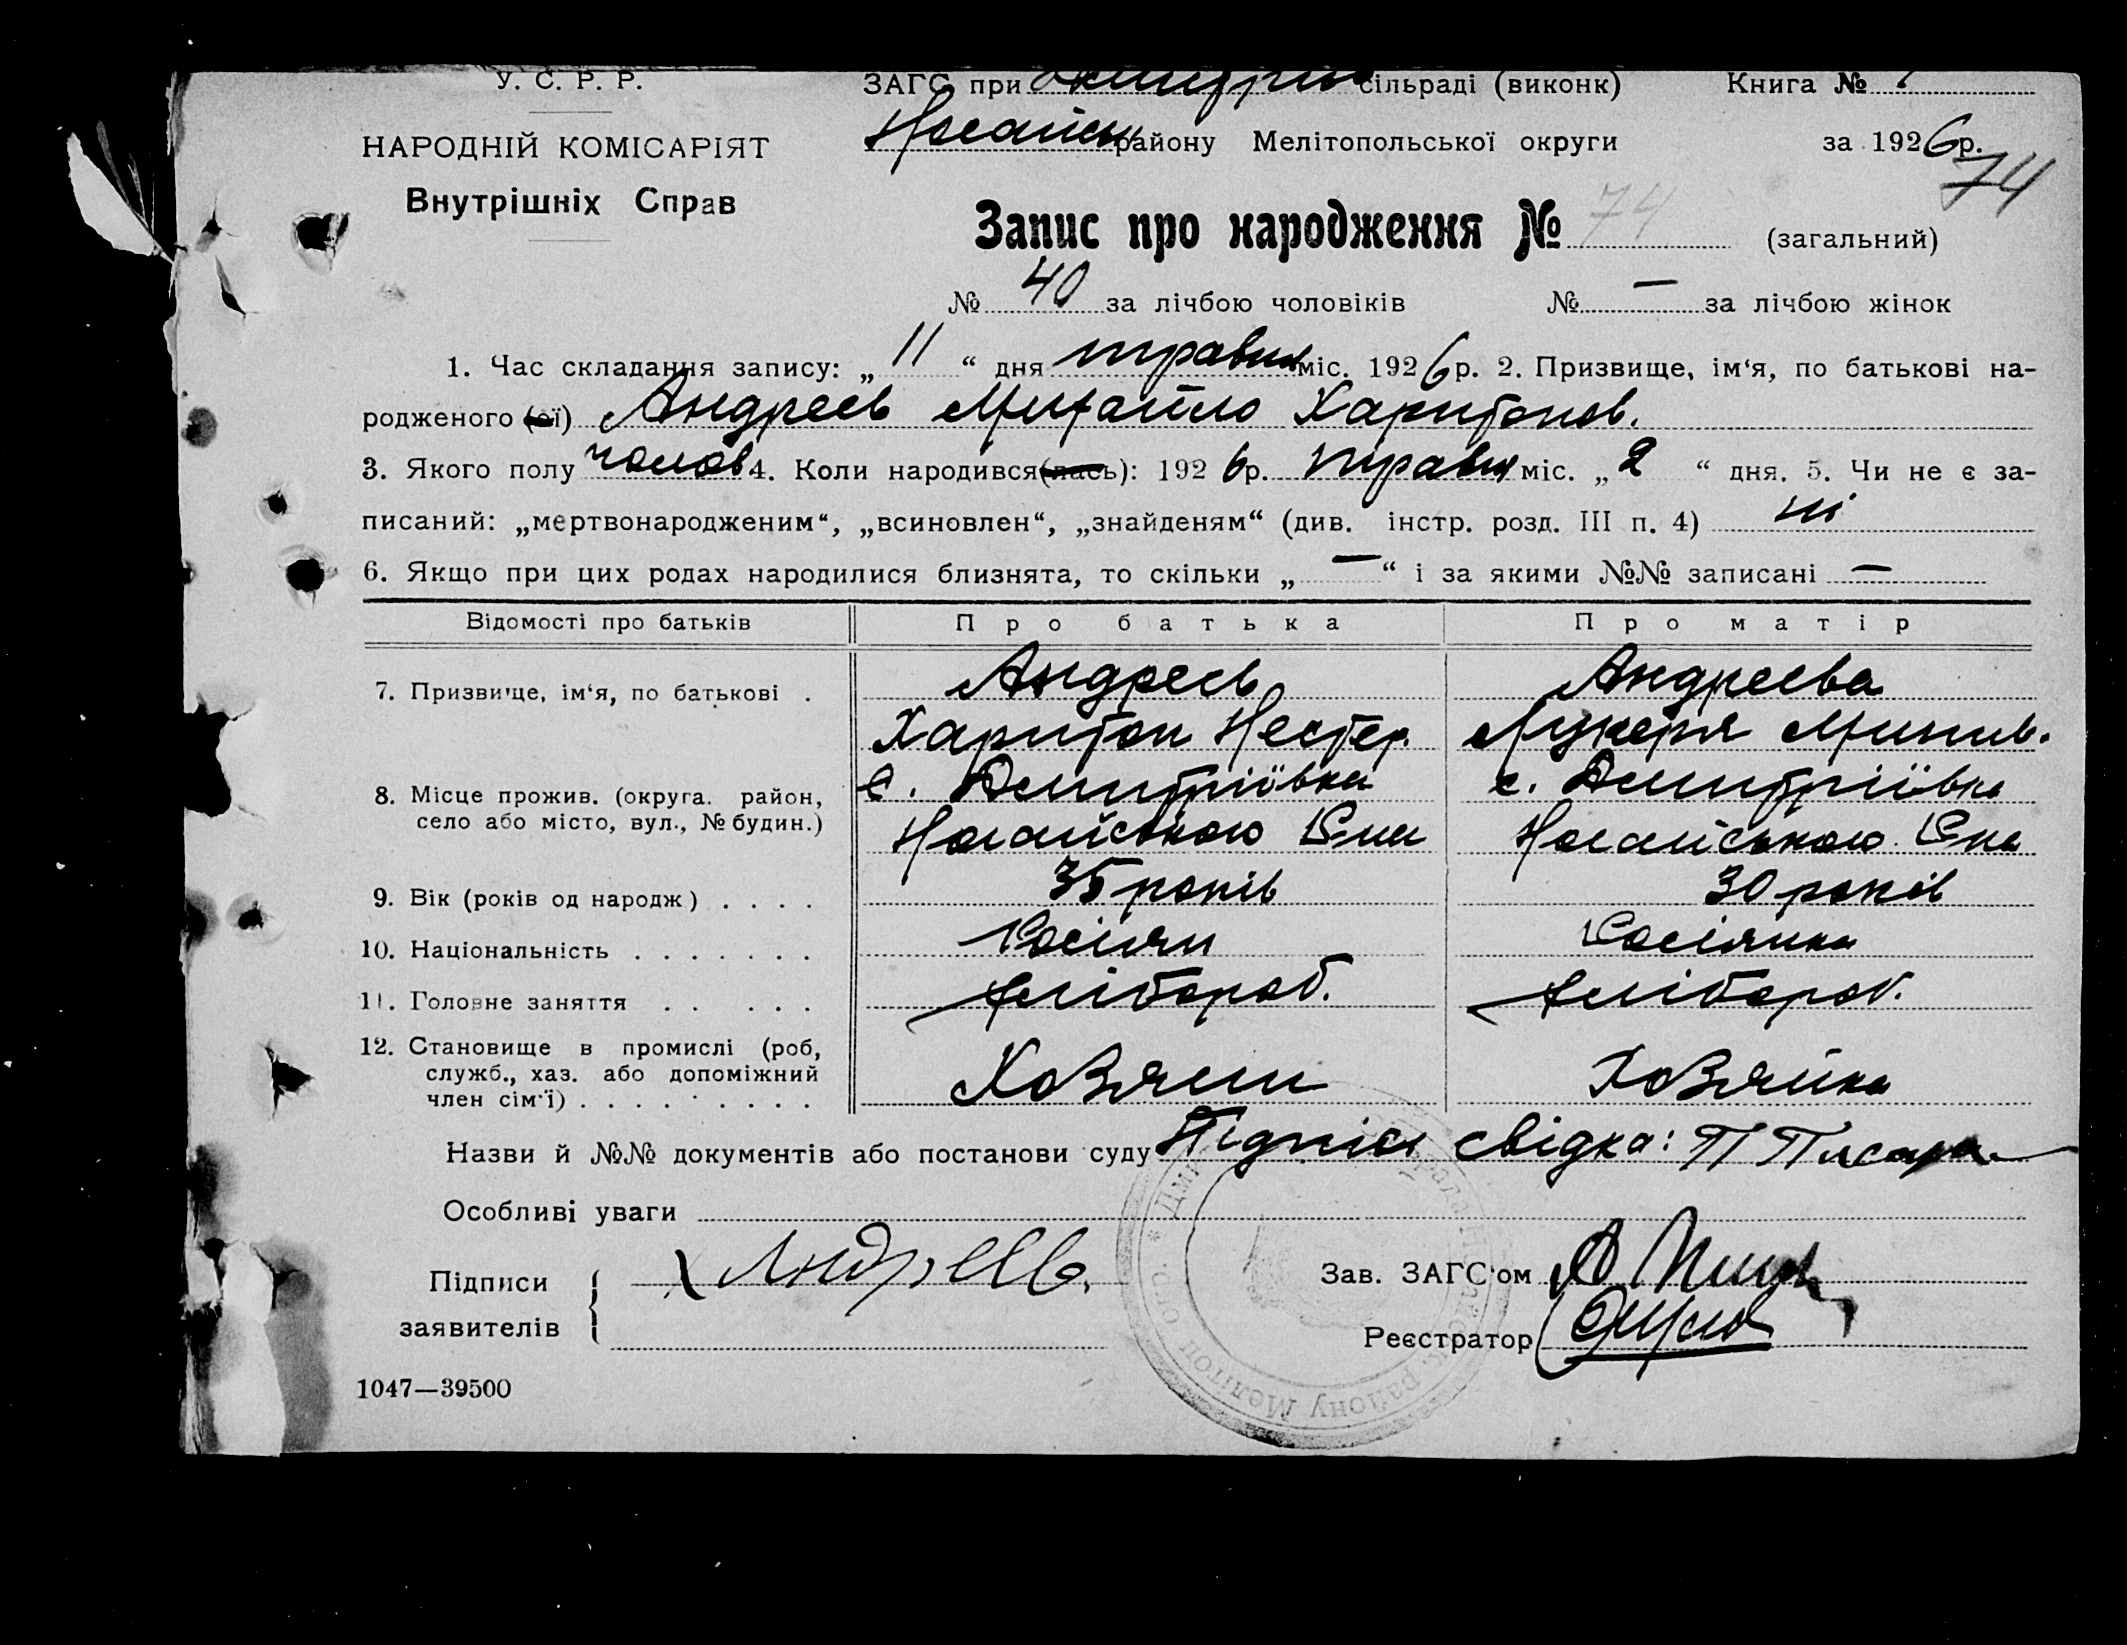 У. С. Р. Р.
ЗАГС при сільраді (виконк) Книга №
НАРОДНІЙ КОМІСАРІЯТ
Внутрішніх Справ
району Мелітопольської округи за 1926 р.
74
Запис про народження № 74 (загальний)
№ 40 за лічбою чоловіків № — за лічбою жінок
1. Час складання запису: „ 11 “ дня травня міс. 1926 р. 2. Призвище, ім‘я, по батькові на-
родженого (ої) Андреєв Михайло Харитонов.
3. Якого полу чолов. 4. Коли народився (лась): 1926 р. травня міс. „ 2 “ дня. 5. Чи не є за-
писаний: „мертвонародженим“, „всиновлен“, „знайденям“ (див. інстр. розд. III п. 4) ні
6. Якщо при цих родах народилися близнята, то скільки „ — “ і за якими №№ записані —
Відомості про батьків Про батька Про матір
7. Призвище, ім‘я, по батькові . Андреєв Андреєва
Харитон Нестер. Лукеря
8. Місце прожив. (округа. район, с. Дмитріївка с. Дмитріївка
село або місто, вул., № будин.) Ногайського Р-на Ногайського Р-на
9. Вік (років од народж) . . . . 35 років 30 років
10. Національність . . . . . . . Росіян Росіянка
11. Головне заняття . . . . . . Хлібороб. Хлібороб.
12. Становище в промислі (роб,
служб., хаз. або допоміжний Хозяин Хозяйка
член сім‘ї) . . . . . . . . .
Назви й №№ документів або постанови суду Підпис свідка: П Писара
Особливі уваги
Підписи Андреев Зав. ЗАГС‘ом
заявителів Реєстратор
1047—39500
району Мелітоп окр.